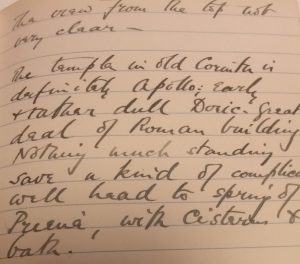 the view from the top not
very clear –
The temple in old Corinth is
definitely Apollo: Early
+ rather dull Doric. Great
deal of Roman building
Nothing much standing
save a kind of complica
well head to spring of
, with cisterns &
bath.